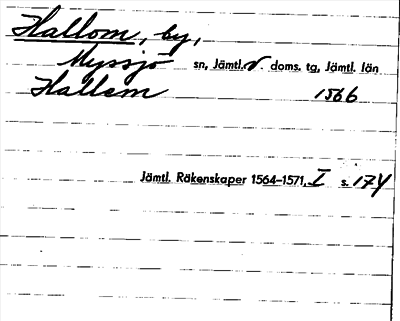 Hallom, by,
Myssjö sn, Jämtl. v. doms. tg, Jämtl. län
Hallem 1566
Jämtl. Räkenskaper 1564–1571, I s. 174